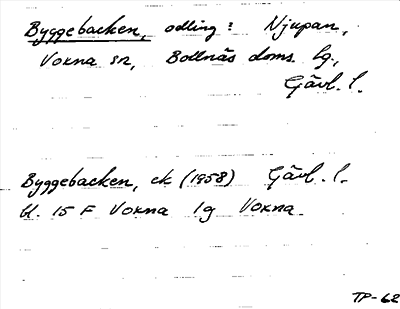 Byggebacken, odling: Njupan,
Voxna sn, Bollnäs doms. lg.,
Gävl. l.
Byggebacken, ek (1958) Gävl. l.
bl. 15 F Voxna 1g Voxna
TP-62